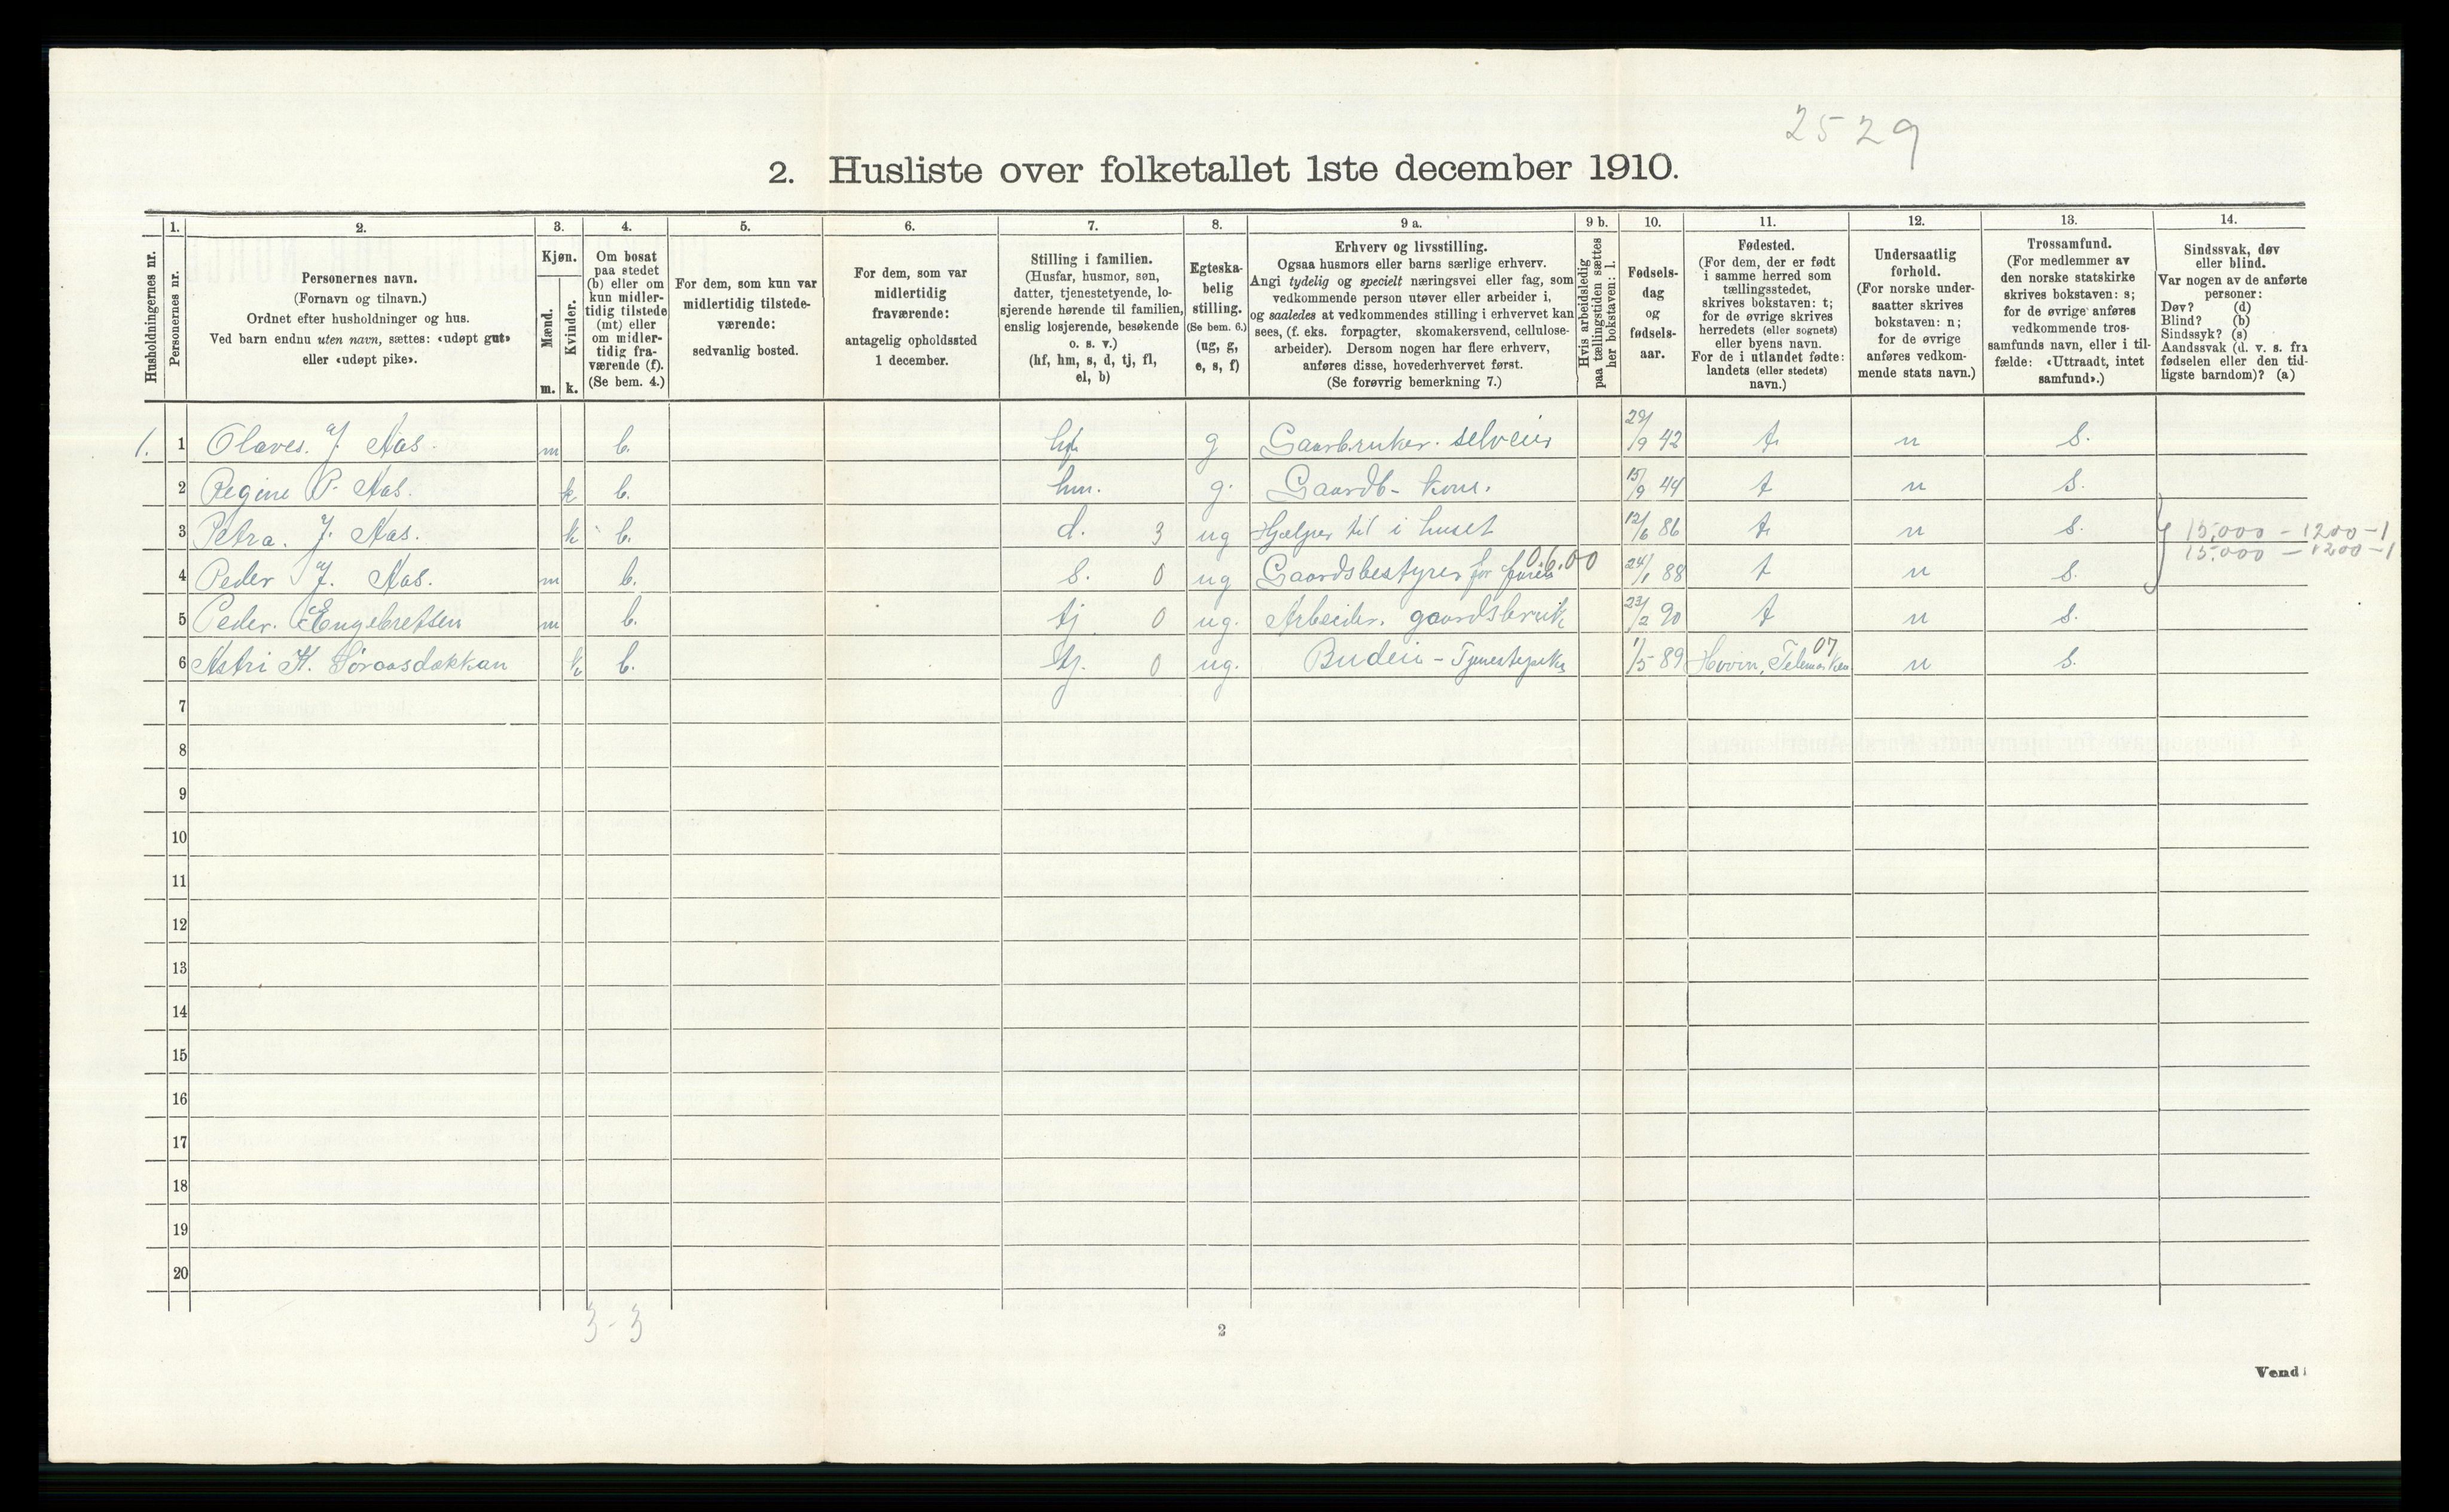 2529
2. Husliste over folketallet 1ste december 1910.
Husholdningernes nr.
1.
Personernes nr.
2.
Personernes navn.
(Fornavn og tilnavn.)
Ordnet efter husholdninger og hus.
Ved barn endnu uten navn, sættes: «udøpt gut»
eller «udøpt pike».
3.
Kjøn.
Mænd.
Kvinder.
m. k.
4.
Om bosat
paa stedet
(b) eller om
kun midler-
tidig tilstede
(mt) eller
om midler-
tidig fra-
værende (f).
(Se bem. 4.)
5.
For dem, som kun var
midlertidig tilstede-
værende:
sedvanlig bosted.
6.
For dem, som var
midlertidig
fraværende:
antagelig opholdssted
1 december.
7.
Stilling i familien.
(Husfar, husmor, søn,
datter, tjenestetyende, lo-
sjerende hørende til familien,
enslig losjerende, besøkende
o. s. v.)
(hf, hm, s, d, tj, fl,
el, b)
8.
Egteska-
belig
stilling.
(Se bem. 6.)
(ug, g,
e, s, f)
9 a.
Erhverv og livsstilling.
Ogsaa husmors eller barns særlige erhverv.
Angi tydelig og specielt næringsvei eller fag, som
vedkommende person utøver eller arbeider i,
og saaledes at vedkommendes stilling i erhvervet kan
sees, (f. eks. forpagter, skomakersvend, cellulose-
arbeider). Dersom nogen har flere erhverv,
anføres disse, hovederhvervet først.
(Se forøvrig bemerkning 7.)
9 b.
Hvis arbeidsledig
paa tællingstiden sættes
her bokstaven: l.
10.
Fødsels-
dag
og
fødsels-
aar.
11.
Fødested.
(For dem, der er født
i samme herred som
tællingsstedet,
skrives bokstaven: t;
for de øvrige skrives
herredets (eller sognets)
eller byens navn.
For de i utlandet fødte:
landets (eller stedets)
navn.)
12.
Undersaatlig
forhold.
(For norske under-
saatter skrives
bokstaven: n;
for de øvrige
anføres vedkom-
mende stats navn.)
13.
Trossamfund.
(For medlemmer av
den norske statskirke
skrives bokstaven: s;
for de øvrige anføres
vedkommende tros-
samfunds navn, eller i til-
fælde: «Uttraadt, intet
samfund».)
14.
Sindssvak, døv
eller blind.
Var nogen av de anførte
personer:
Døv? (d)
Blind? (b)
Sindssyk? (s)
Aandssvak (d. v. s. fra
fødselen eller den tid-
ligste barndom)? (a)
1. 1 Olaves. J. Aas. m b. hf. g Gaarbruker. selveier 29/9 42 t. n s.
2 Regine P. Aas. k b. hm. g. Gaardb- kone. 15/9 44 t n s.
3 Petra. J. Aas. k b. d. 3 ug Hjælper til i huset 12/6 86 t. n s. 15,000 - 1200 - 1
15.000 - 1200 - 1
0.6.00
4 Peder J. Aas. m b. s. 0 ug Gaardsbestyrer for faren 24/1 88 t n s.
5 Peder. Engebretsen m b. tj 0 ug. Arbeider. gaardsbruk 23/2 90 t n s.
07
6 Astri K. b. tj. 0 ug. Budeie - 1/5 89 Hovin, Telemarken n s.
7
8
9
10
11
12
13
14
15
16
17
18
19
20
3 - 3
2
Vend